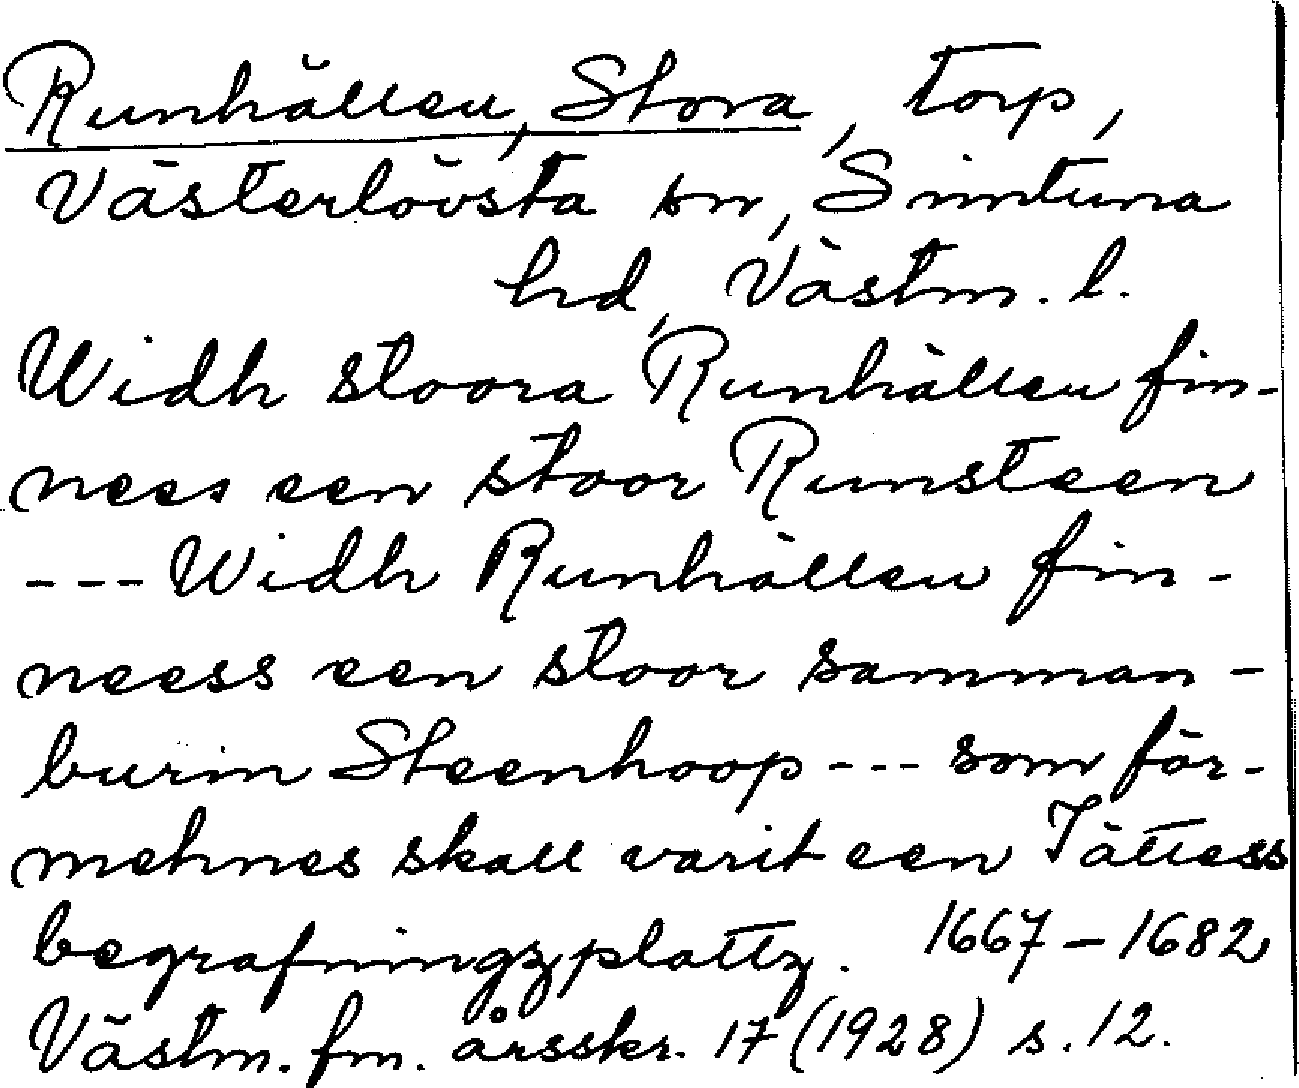 Runhällen, Stora, torp,
Västerlövsta sn, Simtuna
hd, Västm. l.
Widh stoora Runhällen fin-
nees een stoor Runsteen
--- Widh Runhällen fin-
neess een stoor samman-
burin Steenhoop --- som för-
mehnes skall varit een Jättess
begrafningzplattz. 1667-1682
Västm. fm. årsskr. 17 (1928) s. 12.